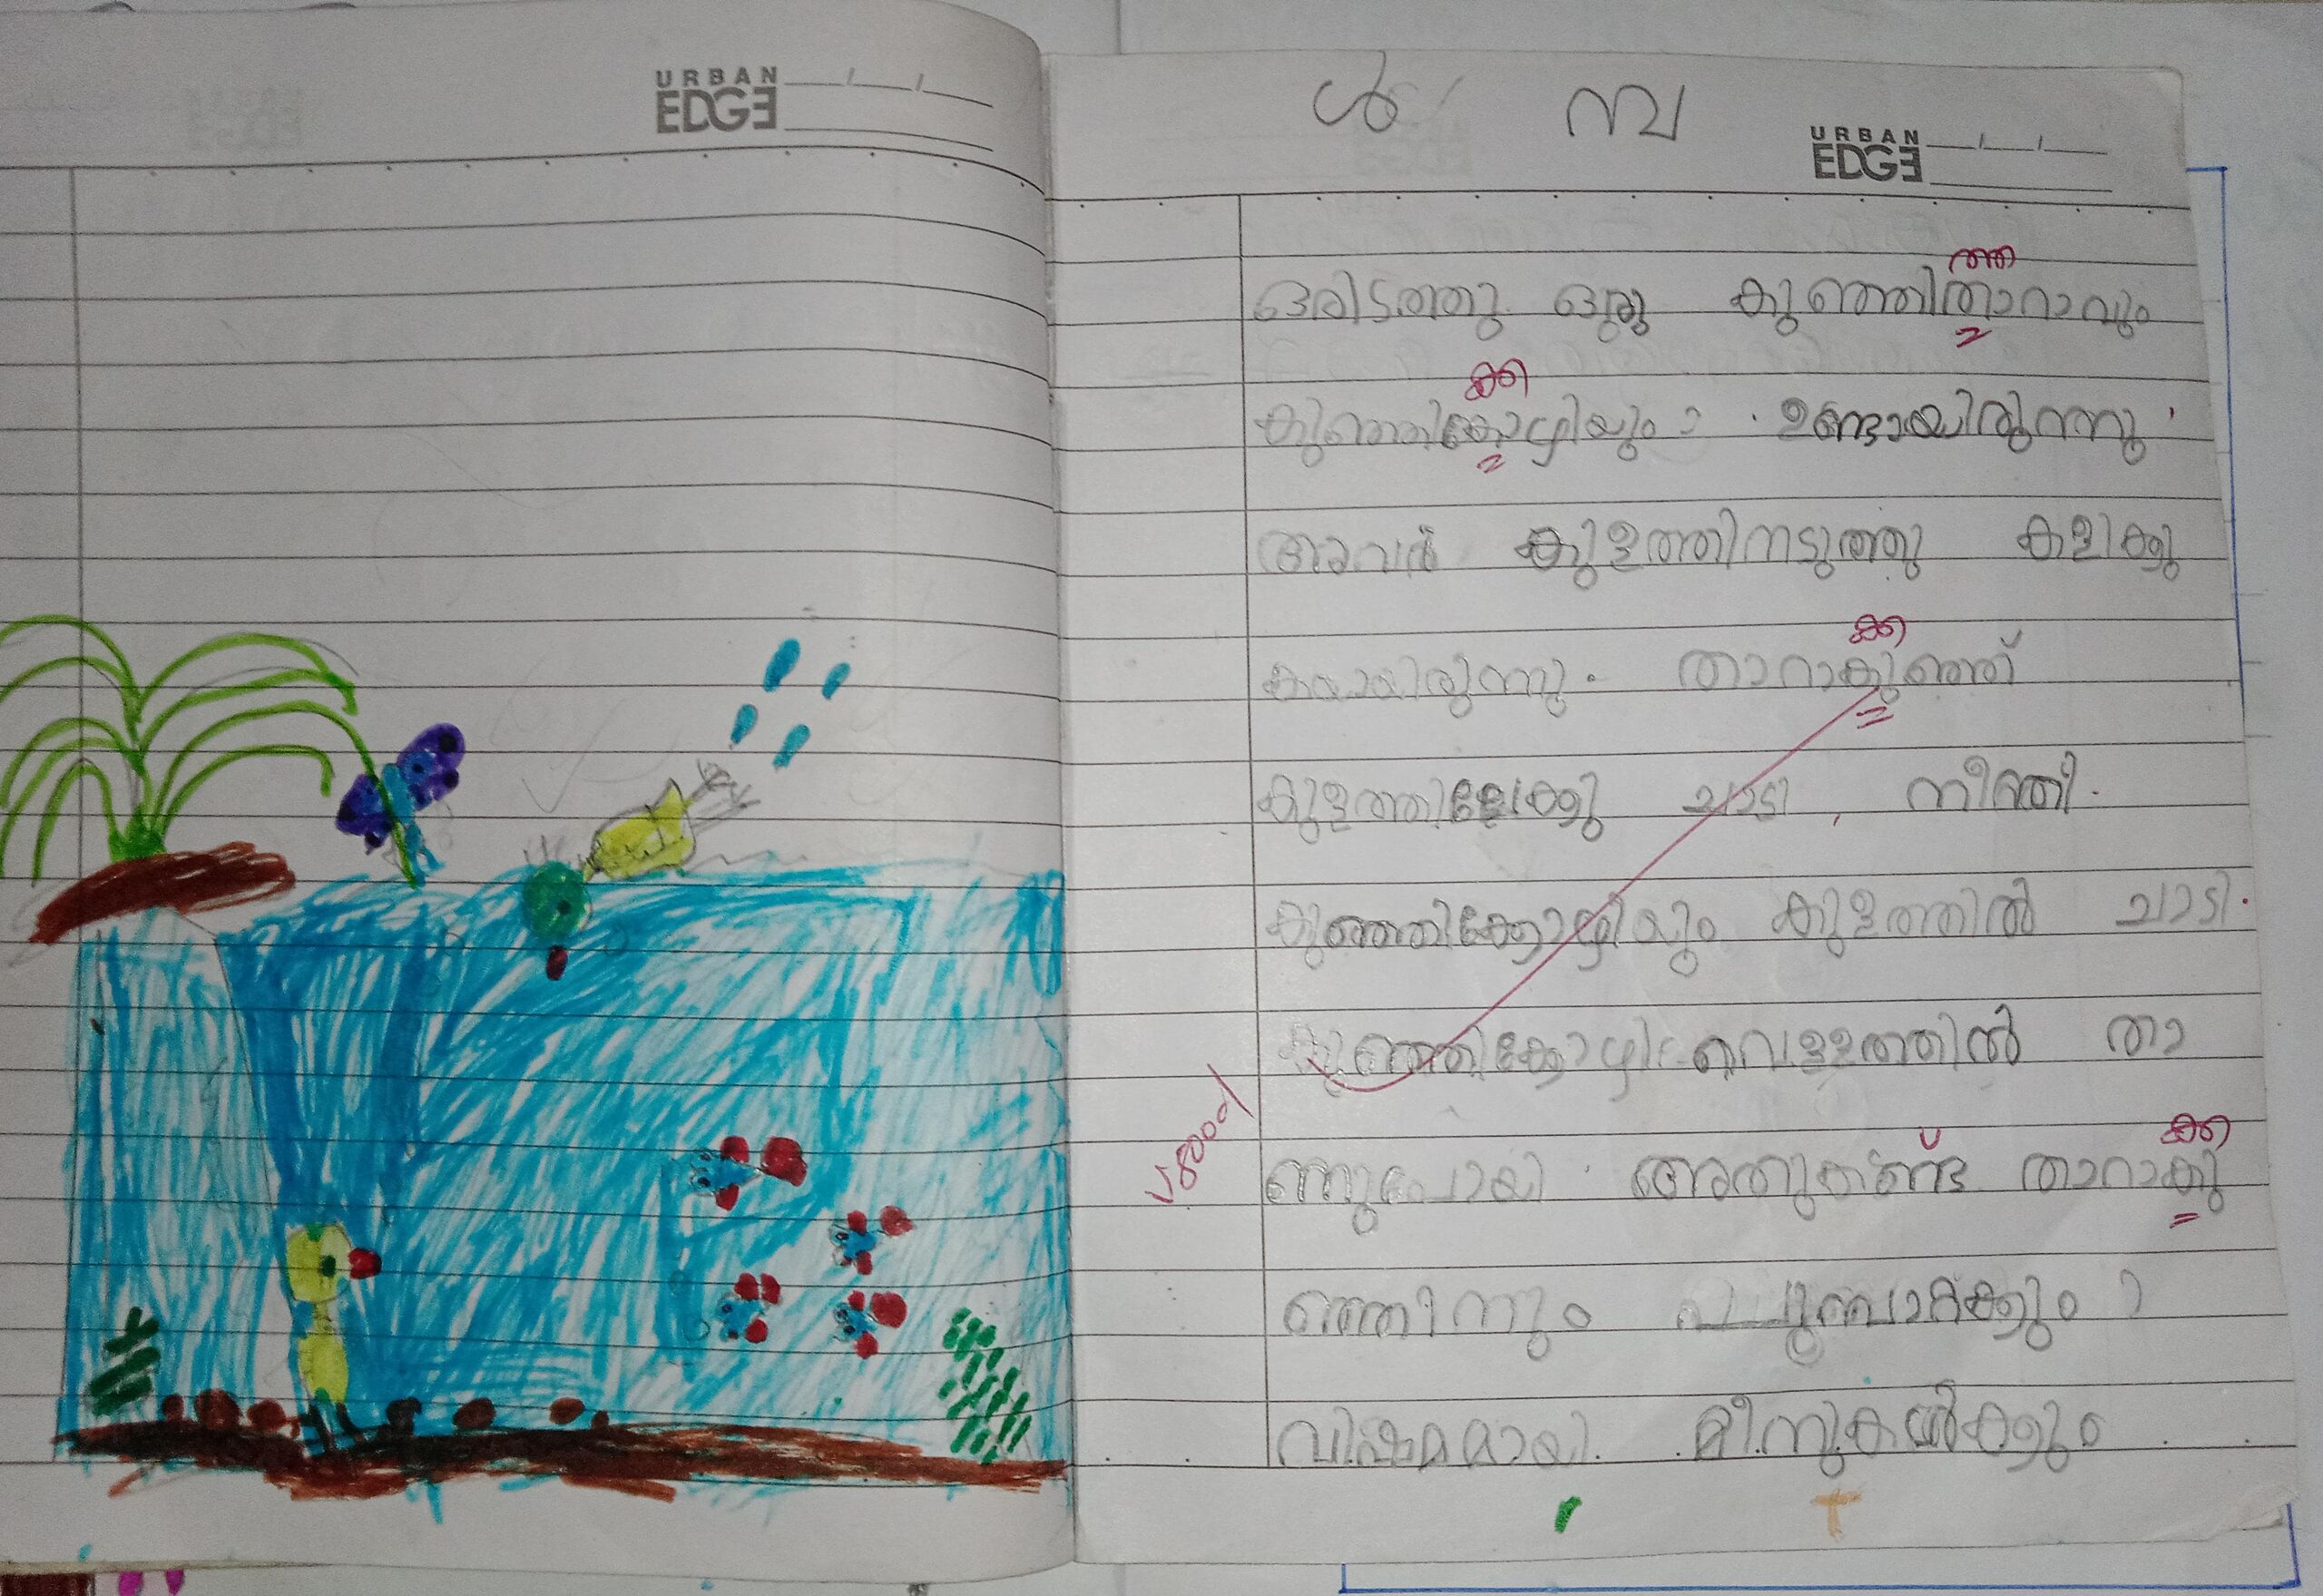 URBAN
EDGE
ൾ മ്പ
URBAN
EDGE
ത്ത
ഒരിടത്തു ഒരു കുഞ്ഞിതാറാവും
ക്ക
കുഞ്ഞികോഴിയും ഉണ്ടായിരുന്നു
അവർ കുളത്തിനടുത്തു കളിക്കു
ക്ക
കയായിരുന്നു. താറാകുഞ്ഞ്
കുളത്തിലേക്കു ചാടി, നീന്തി.
കുഞ്ഞിക്കോഴിയും കുളത്തിൽ ചാടി.
കുഞ്ഞിക്കോഴി വെള്ളത്തിൽ താ
Good
ക്ക
ണുപോയി. അതുകണ്ട് താറാകു
ഞ്ഞിനും
വിഷമമായി. മീനുകൾകളും